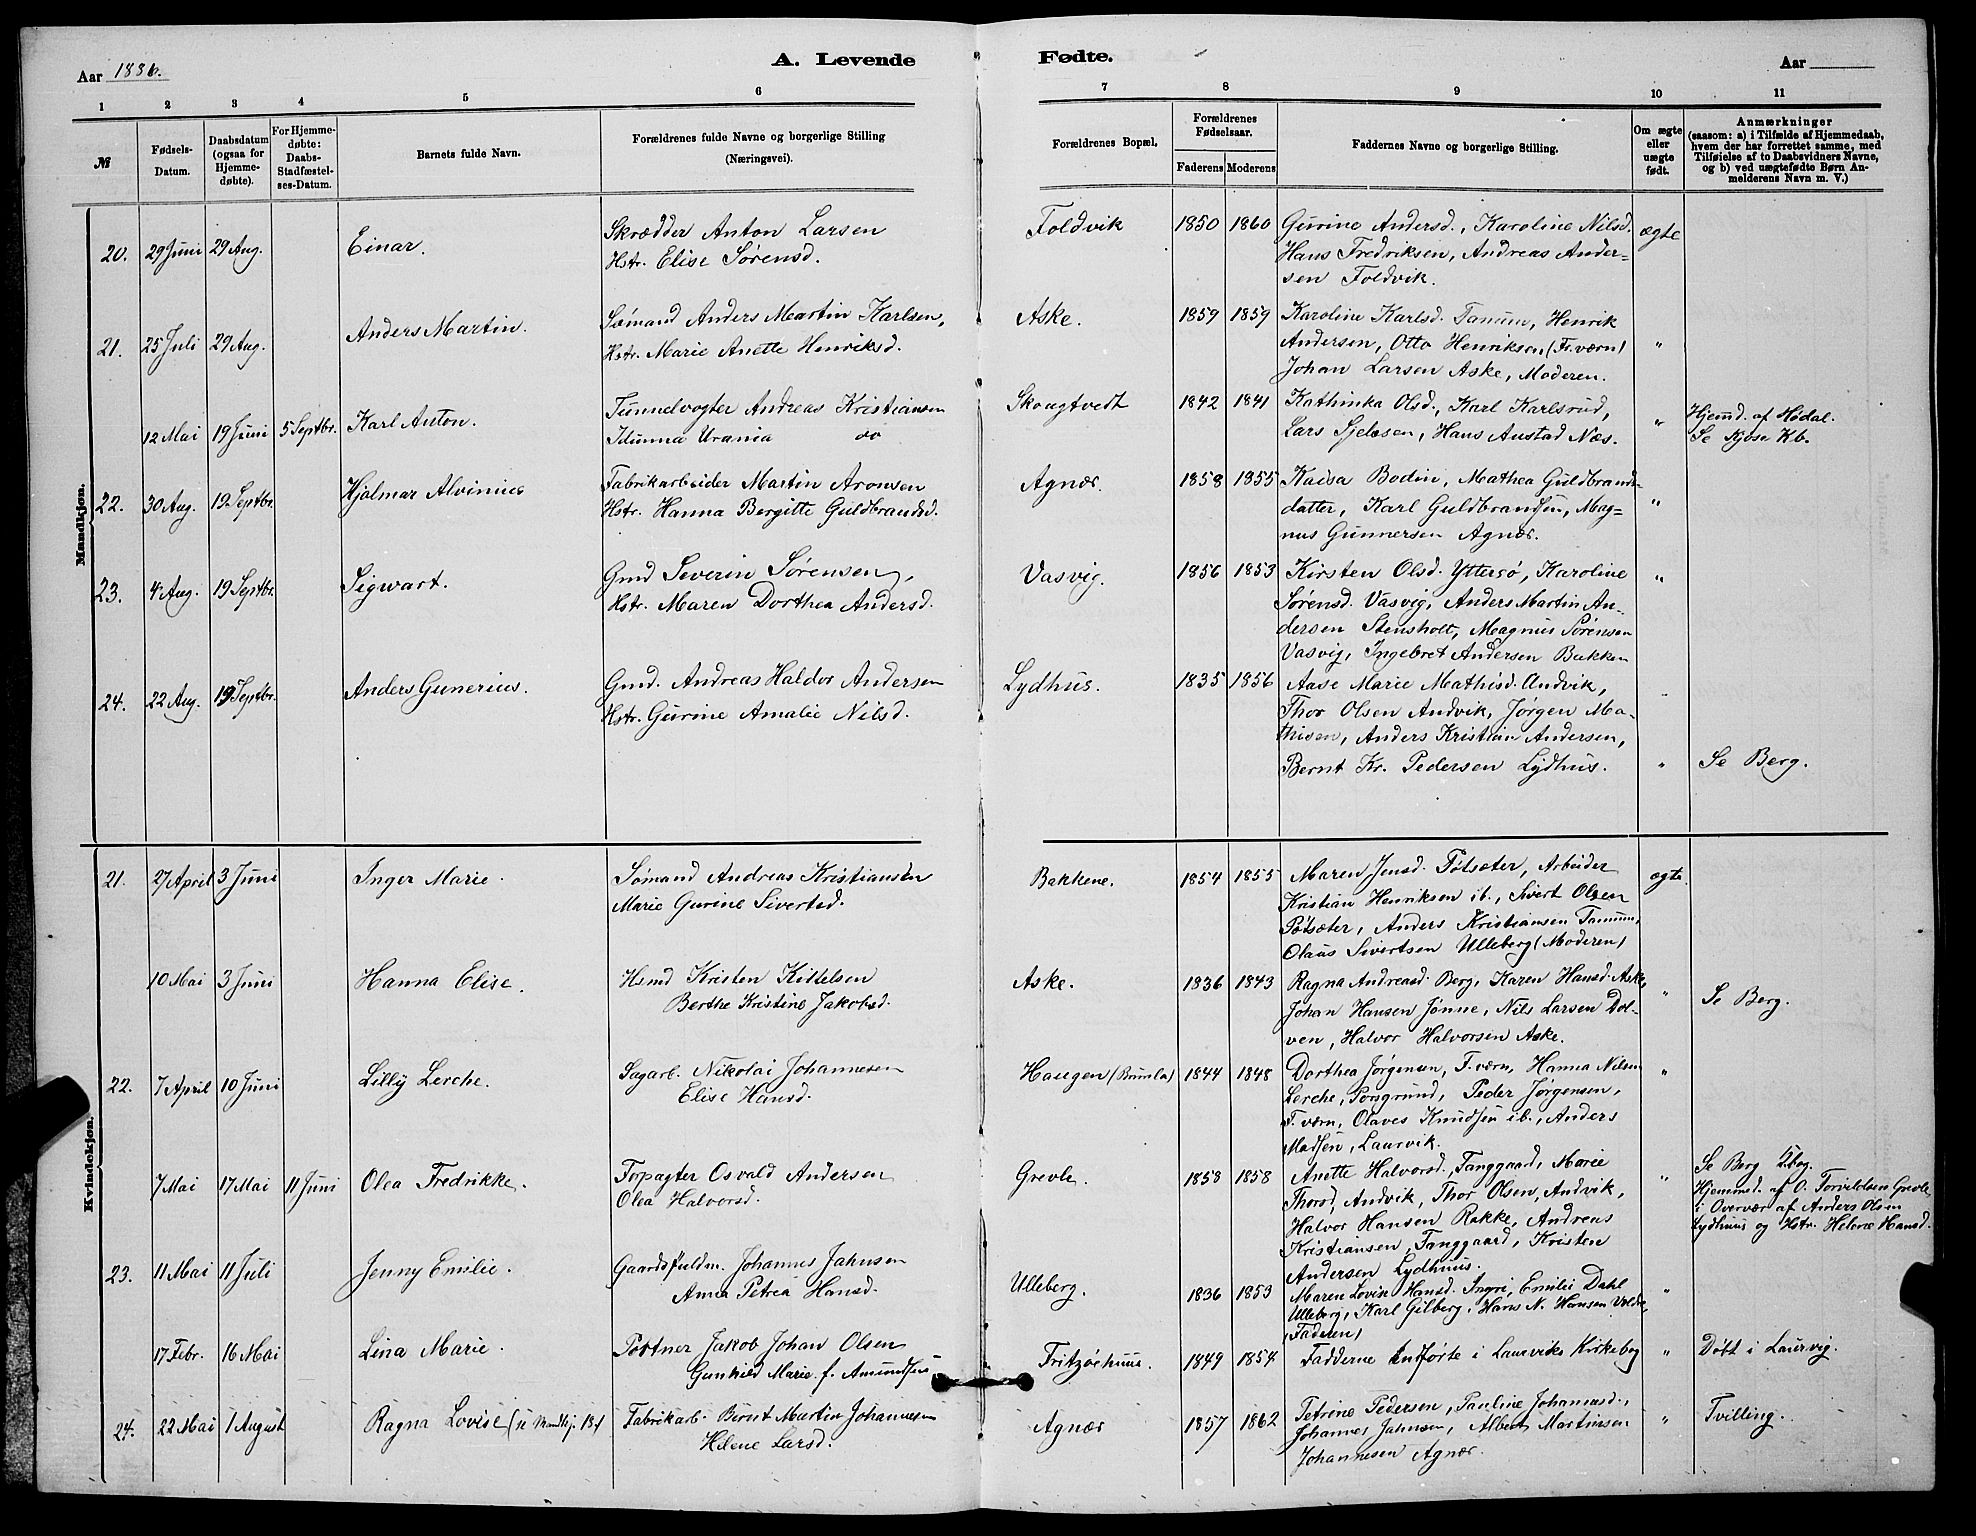 Aar 1886.
A. Levende
Fødte.
Aar
1 2 3 4 5 6 7 8 9 10 11
№
Fødsels-
Datum.
Daabsdatum
(ogsaa for
Hjemme-
døbte).
For Hjemme-
døbte:
Daabs-
Stadfæstel-
ses-Datum.
Barnets fulde Navn.
Forældrenes fulde Navne og borgerlige Stilling
(Næringsvei).
Forældrenes Bopæl.
Forældrenes
Fødselsaar.
Faderens Moderens
Faddernes Navne og borgerlige Stilling.
Om ægte
eller
uægte
født.
Anmærkninger
(saasom: a) i Tilfælde af Hjemmedaab,
hvem der har forrettet samme, med
Tilføielse af to Daabsvidners Navne,
og b) ved uægtefødte Børn An-
melderens Navn m. V.)
Mandkjøn.
20. 29 Juni 29 Aug. Einar.
Skrædder Anton Larsen
Hstr. Elise Sørensd.
Foldvik 1850 1860
Gurine Andersd., Karoline Nilsd.
Hans Fredriksen, Andreas Ander=
sen Foldvik.
ægte
21. 25 Juli 29 Aug. Anders Martin.
Sømand Anders Martin Karlsen,
Hstr. Marie Anette Henriksd.
Aske. 1859 1859
Karoline Karlsd. Tanum, Henrik
Andersen, Otto Henriksen (Fr.værn)
Johan Larsen Aske, Moderen.
"
12 Mai 19 Juni 5 Septbr. Karl Anton.
Tunnelvogter Andreas Kristiansen
Idunna Urania do
Skougtvedt 1842 1841
Kathinka Olsd., Karl Karlsrud,
Lars Sjelesen, Hans Austad Næs.
"
Hjemd. af Hødal.
Se Kjose Kb.
22. 30 Aug. 19 Septbr. Hjalmar Alvinius
Fabrikarbeider Martin Aronsen
Hstr. Hanna Bergitte Guldbrandsd.
Agnær. 1858 1855
Kaisa Bodin, Mathea Guldbrands=
datter, Karl Guldbrandsen, Mag=
nus Gunnersen Agnær.
"
23. 4 Aug. 19 Septbr. Sigwart.
Gmd Severin Sørensen,
Hstr. Maren Dorthea Andersd.
Vasvig. 1856 1853
Kirsten Olsd. Yttersø, Karoline
Sørensd. Vasvig, Anders Martin An-
dersen Stensholt, Magnus Sørensen
Vasvig, Ingebret Andersen Bakken
"
24. 22 Aug. 19 Septbr. Anders Gunerius.
Gmd. Andreas Haldor Andersen
Hstr. Gurine Amalie Nilsd.
Lydhus. 1835 1856
Aase Marie Mathisd. Andvik,
Thor Olsen Andvik, Jørgen Ma-
thisen, Anders Kristian Andersen,
Bernt Kr. Pedersen Lydhus.
"
Se Berg.
Kvindekjøn.
21. 27 April 3 Juni Inger Marie.
Sømand Andreas Kristiansen
Marie Gurine Sivertsd.
Bakkene. 1854 1855
Maren Jensd. Pøtsæter, Arbeider
Kristian Henriksen ib., Sivert Olsen
Pøtsæter, Anders Kristiansen Tanum,
Olaus Sivertsen Ulleberg (Moderen)
ægte
10 Mai 3 Juni Hanna Elise.
Hsmd Kristen Kittelsen
Berthe Kristine Jakobsd.
Aske. 1836 1843
Ragna Andreasd Berg, Karen Hansd. Aske,
Johan Hansen Jønne, Nils Larsen Dol-
ven, Halvor Halvorsen Aske.
"
Se Berg.
22. 7 April 10 Juni Lilly Lerche.
Sagarb. Nikolai Johannesen
Elise Hansd.
Haugen (Brunla) 1844 1848
Dorthea Jørgensen, F.værn, Hanna Nilsen
Lerche, Porsgrund, Peder Jørgensen,
F.værn, Olaves Knudsen ib., Anders
Madsen, Laurvik.
"
7 Mai 17 Mai 11 Juni Olea Fredrikke.
Forpagter Osvald Andersen
Olea Halvorsd.
Grevle. 1858 1858
Anette Halvorsd., Fanggaard, Marie
Thorsd, Andvik, Thor Olsen, Andvik,
Halvor Hansen Rakke, Andreas
Kristiansen, Fanggaard, Kristen
Andersen Lydhuus.
"
Se Berg Kbog.
Hjemmed. af O. Torvildsen Grevle
i Overvær af Anders Olsen
Lydhuus og Hstr. Helene Hansd.
23. 11 Mai 11 Juli Jenny Emilie.
Gaardsfuldm. Johannes Jahnsen
Anna Petrea Hansd.
Ulleberg. 1836 1853
Maren Lovise Hansd. Ingri, Emilie Dahl
Ulleberg, Karl Gilberg, Hans N. Hansen
(Faderen)
"
17 Febr. 16 Mai Lina Marie.
Portner Jakob Johan Olsen
Gunhild Marie f. Amundsen
Fritzøehuus. 1849 1854
Fadderne indførte i Laurviks Kirkebog
"
Døbt i Laurvig.
24. 22 Mai 1 August Ragna Lovise
Fabrikarb. Bernt Martin Johannesen
Helene Larsd.
Agnær 1857 1862
Petrine Pedersen, Pauline Johannesd.,
Johannes Jahnsen, Albert Martinsen
Johannesen Agnær.
"
Tvilling.